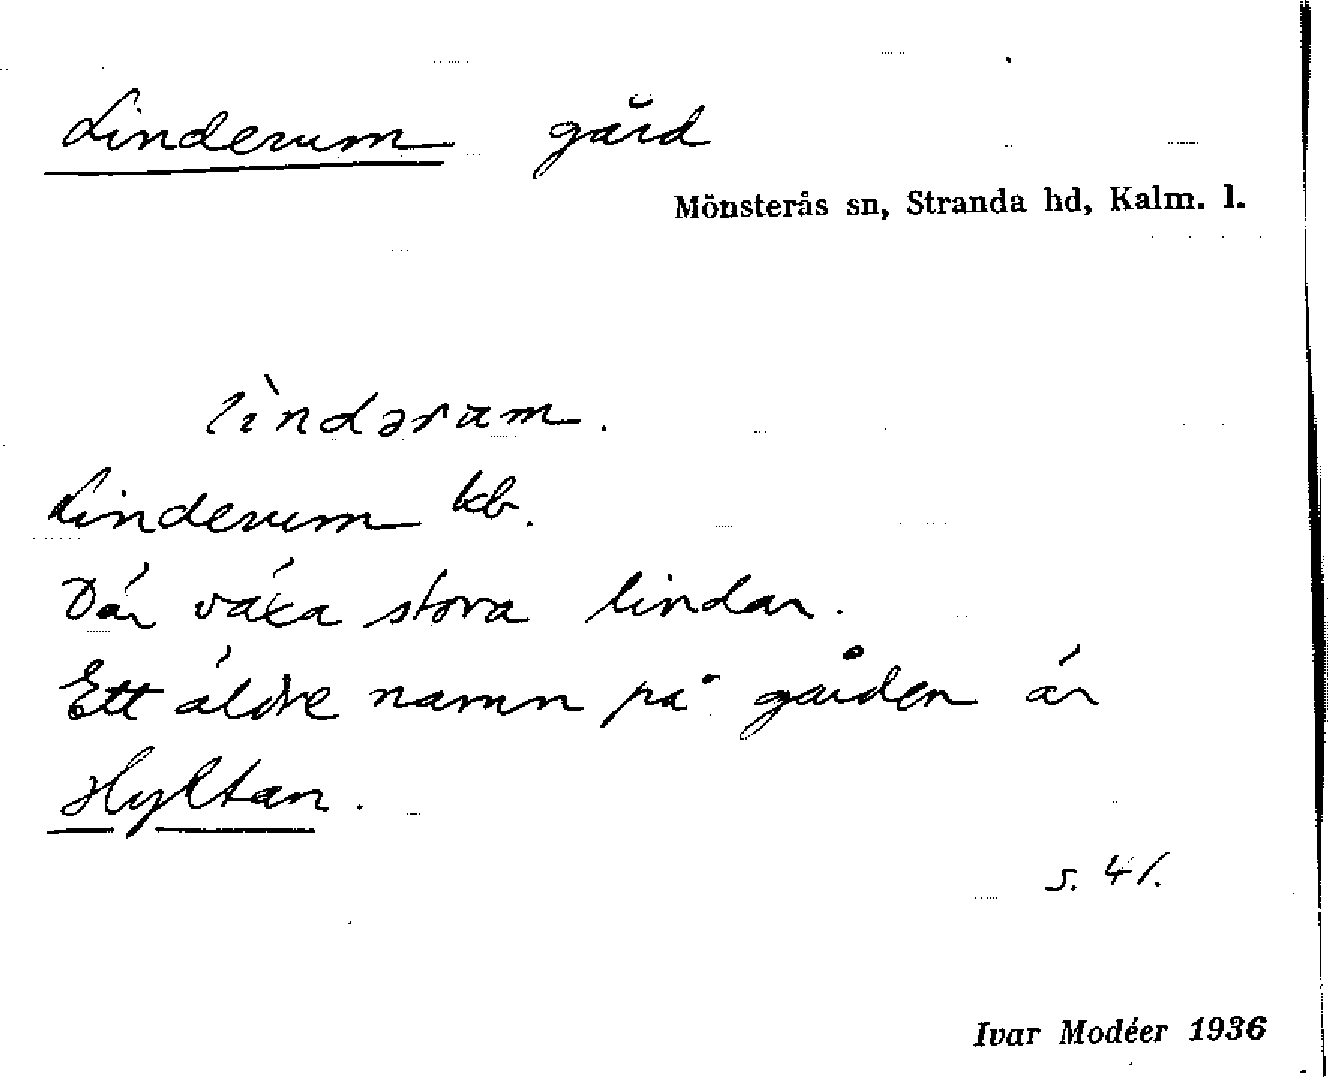 Linderum gård
Mönsterås sn, Stranda hd, Kalm. l.
lìndəram.
Linderum kb.
Där växa stora lindar.
Ett äldre namn på gården är
Hyltan.
s. 41.
Ivar Modéer 1936